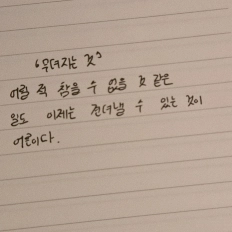 "무뎌지는 것"
어릴 적 참을 수 없을 것 같은
일도 이제는 견뎌낼 수 있는 것이
어른이다.